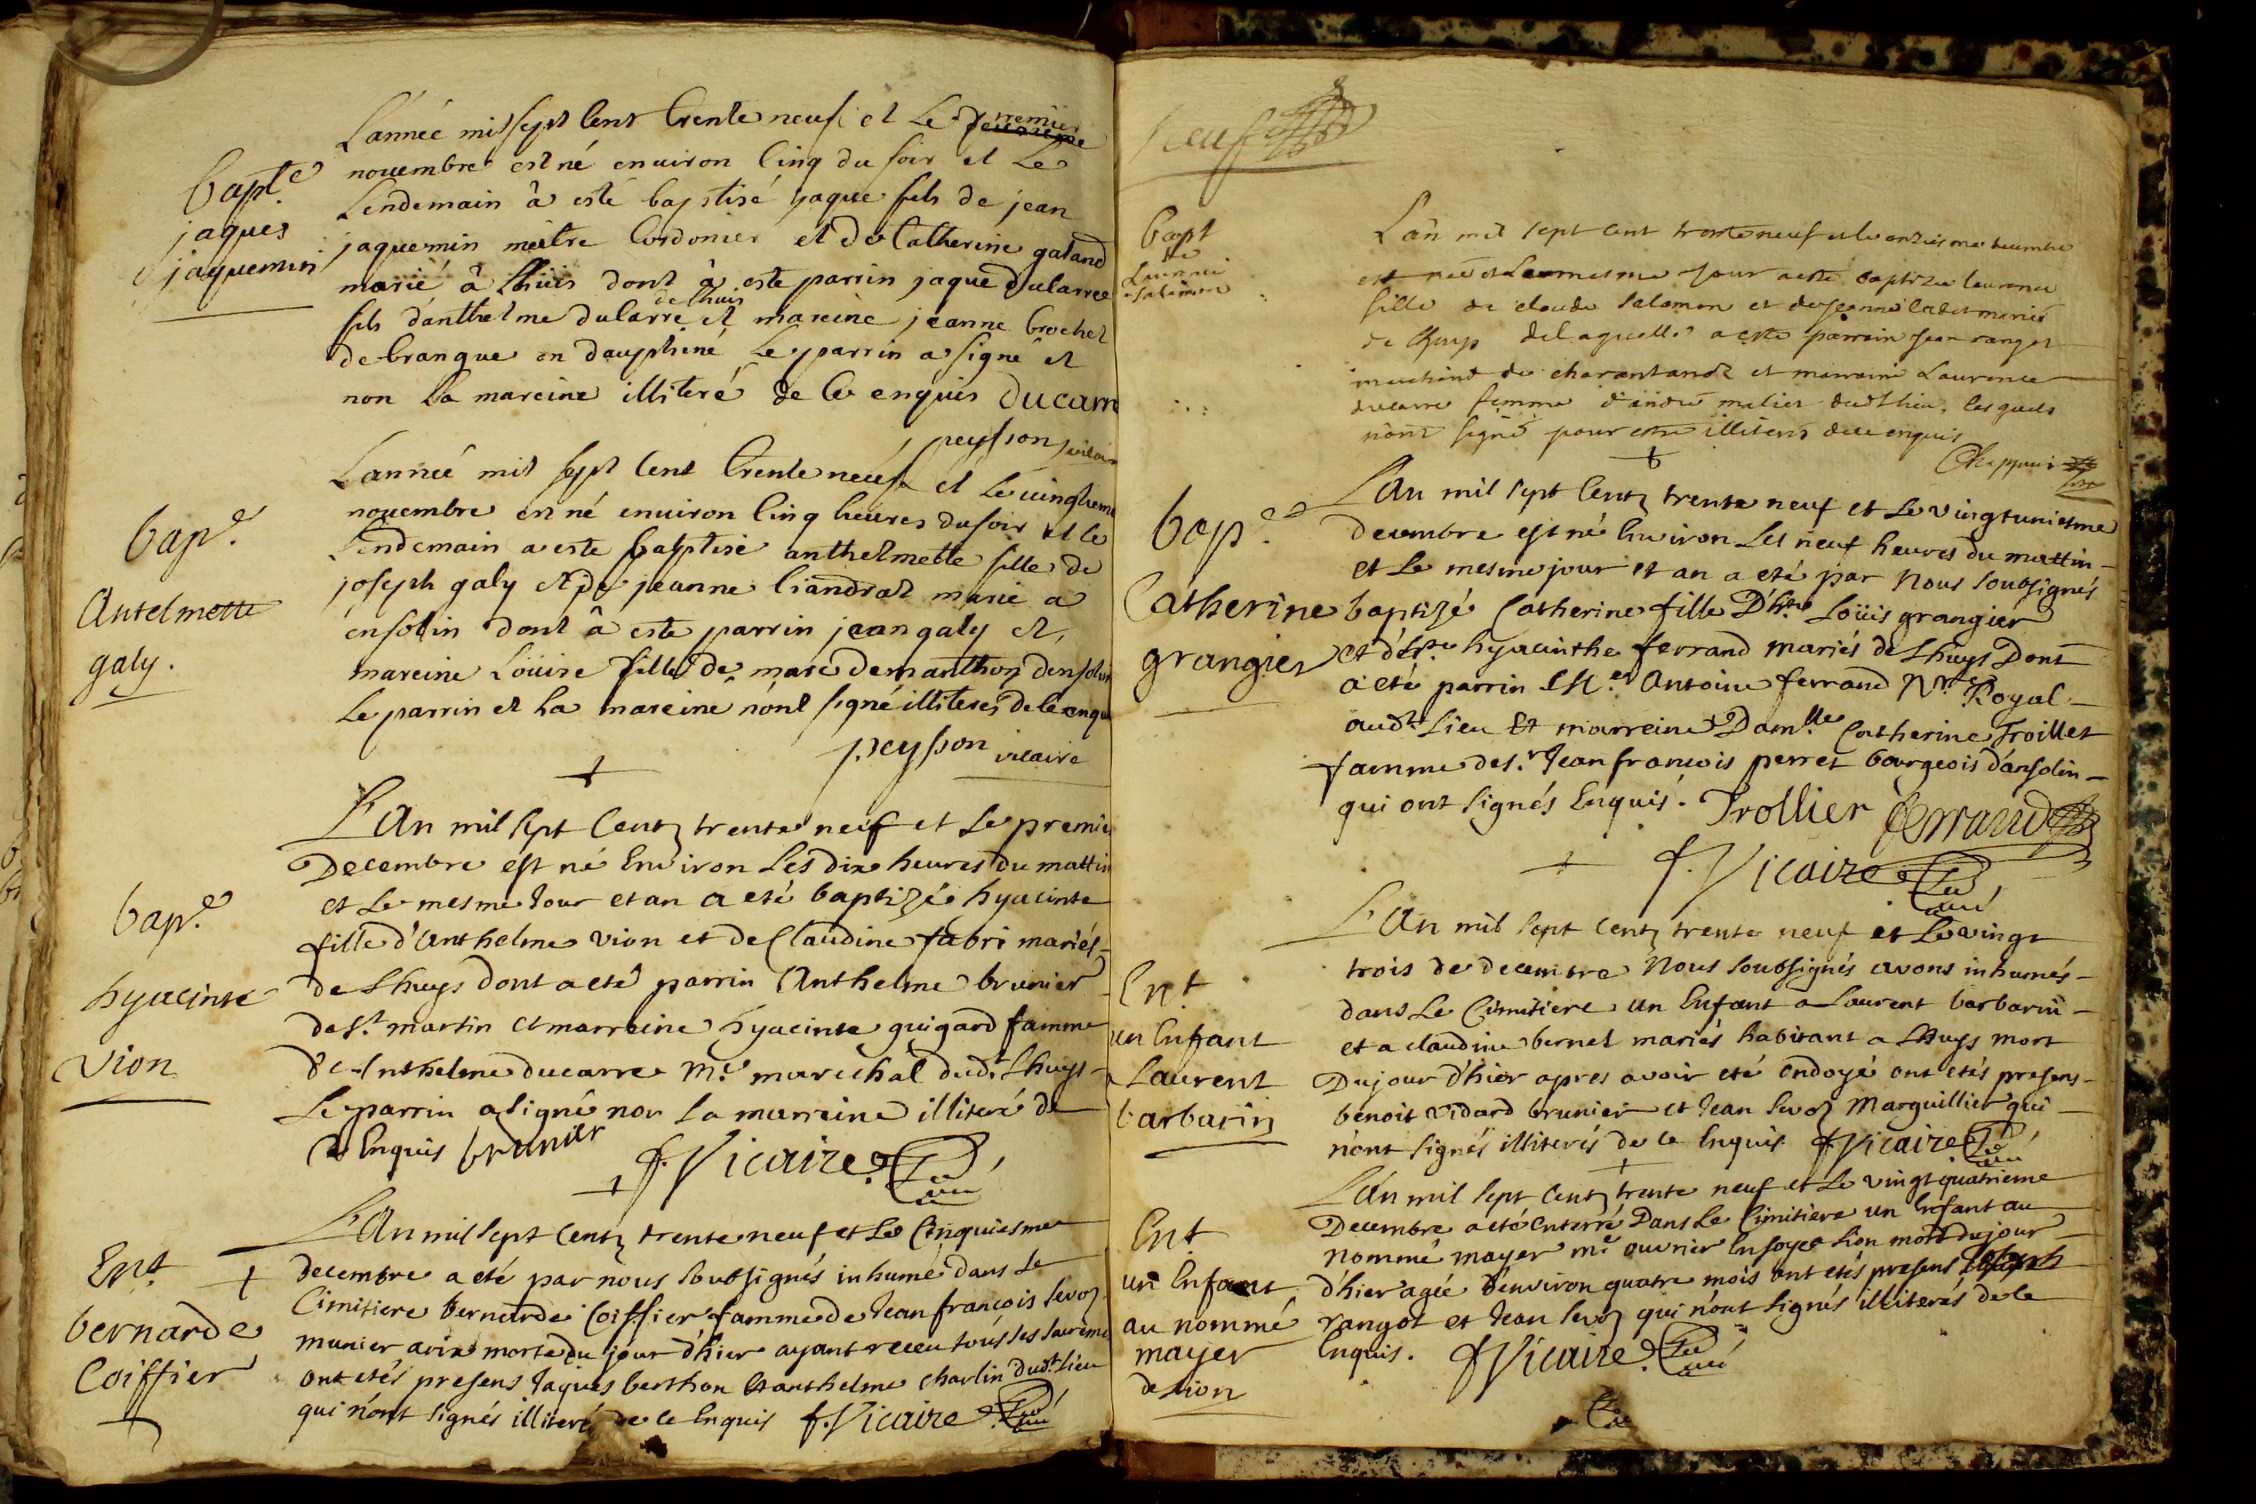 Bapt.e
jaques
jaquemin
L'année mil sept cent trente neuf et le premier
novembre est né environ cinq du soir et le
Lendemain à esté baptisé jaque fils de jean
jaquemin meitre Cordonier et de Catherine galand
marié â Lhuis dont à este parrin jaque ducarre
de lhuis
fils d'anthelme ducarre et mareine jeanne brochet
de brangue en dauphiné Le parrin a signé et
non la mareine illiteré de ce enquis Ducarre
peysson vicaire
bap.e
Antelmette
galy.
L'année mil sept cent trente neuf et le vingtieme
novembre est né environ cinq heures du soir et le
Lendemain a este baptisé anthelmette fille de
joseph galy et de jeanne liandrat marié a
ensolin dont â este parrin jean galy et
mareine Loüise fille de marc demanthon densolin
Le parrin et la mareine n'ont signé illiterés de ce enquis
peysson vicaire
bap.e
hyacinte
vion
L'An mil sept Centz trente neuf et Le premier
Decembre est né Environ Les dix heures du mattin
et Le mesme Jour et an a eté baptizé hyacinte
fille d'Anthelme vion et de Claudine fabri mariés
de Lhuys dont a eté parrin Anthelme brunier
de s.t martin et marraine hyacinte guigard famme
d'Anthelme ducarre m.e marechal dud.t Lhuys
Le parrin a signé non La marraine illiteré de
Ce Enquis brunier f. Vicaire
Ent
bernarde
Coiffier
L'An mil sept Centz trente neuf et Le Cinquiesme
decembre a eté par nous soubsignés inhumé dans Le
Cimitiere bernarde Coiffier famme de Jean françois sevoz
munier morte du jour d'hier ayant receu tous les sacrèmens
ont etés presens Jaques berthon et anthelme charlin dud.t Lieu
qui n'ont signés illiterés de ce Enquis f. Vicaire
neuf
bapt
de
Laurence
Salomon
L'an mil sept cent trente neuf et le onziesme decembre
est née et Le mesme jour a esté baptizée laurence
fille de claude salomon et de jeanne cadet mariés
de Lhuys de laquelle a esté parrain jean rangot
marchand de charantanod et marraine Laurence
ducarre femme d'andré melier dud.t lieu, lesquels
n'ont signé pour estre illiterés de ce enquis
Chappuis
bap.e
Catherine
grangier
L'An mil sept Centz trente neuf et Le vingtuniesme
decembre est né Environ Les neuf heures du mattin
et Le mesme jour et an a eté par Nous soubsignés
baptizé Catherine fille D'h.e Loüis grangier
et d'h.te hyacinthe ferrand mariés de Lhuys Dont
a eté parrin Antoine ferrand N.re Royal
aud.t Lieu et marreine Dam.lle Catherine Troillet
famme de s.r Jean francois perret bourgeois d'ansolin
qui ont signés Enquis. Trollier ferrand
f. Vicaire
Ent
un Enfant
a Laurent
barbarin
L'An mil sept Centz trente neuf et Le vingt
trois de decembre Nous soubsignés avons inhumés
dans Le Cimitiere un Enfant a Laurent barbarin
et a claudine bernet mariés habitant a Lhuys mort
Dujour d'hier apres avoir eté ondoyé ont etés presens
benoit vidard brunier et Jean sevoz Marguillier qui
n'ont signés illiterés de ce Enquis f Vicaire
Ent
un Enfant
au nommé
mayer
de Lion
L'An mil sept Centz trente neuf et Le vingt quatrieme
Decembre a eté enterré Dans Le Cimitiere un Enfant au
nommé mayer m.e ouvrier En soye a Lion mort dujour
d'hier agée d'environ quatre mois ont etés presens Joseph
rangot et Jean sevoz qui n'ont signés illiterés de ce
Enquis. f Vicaire